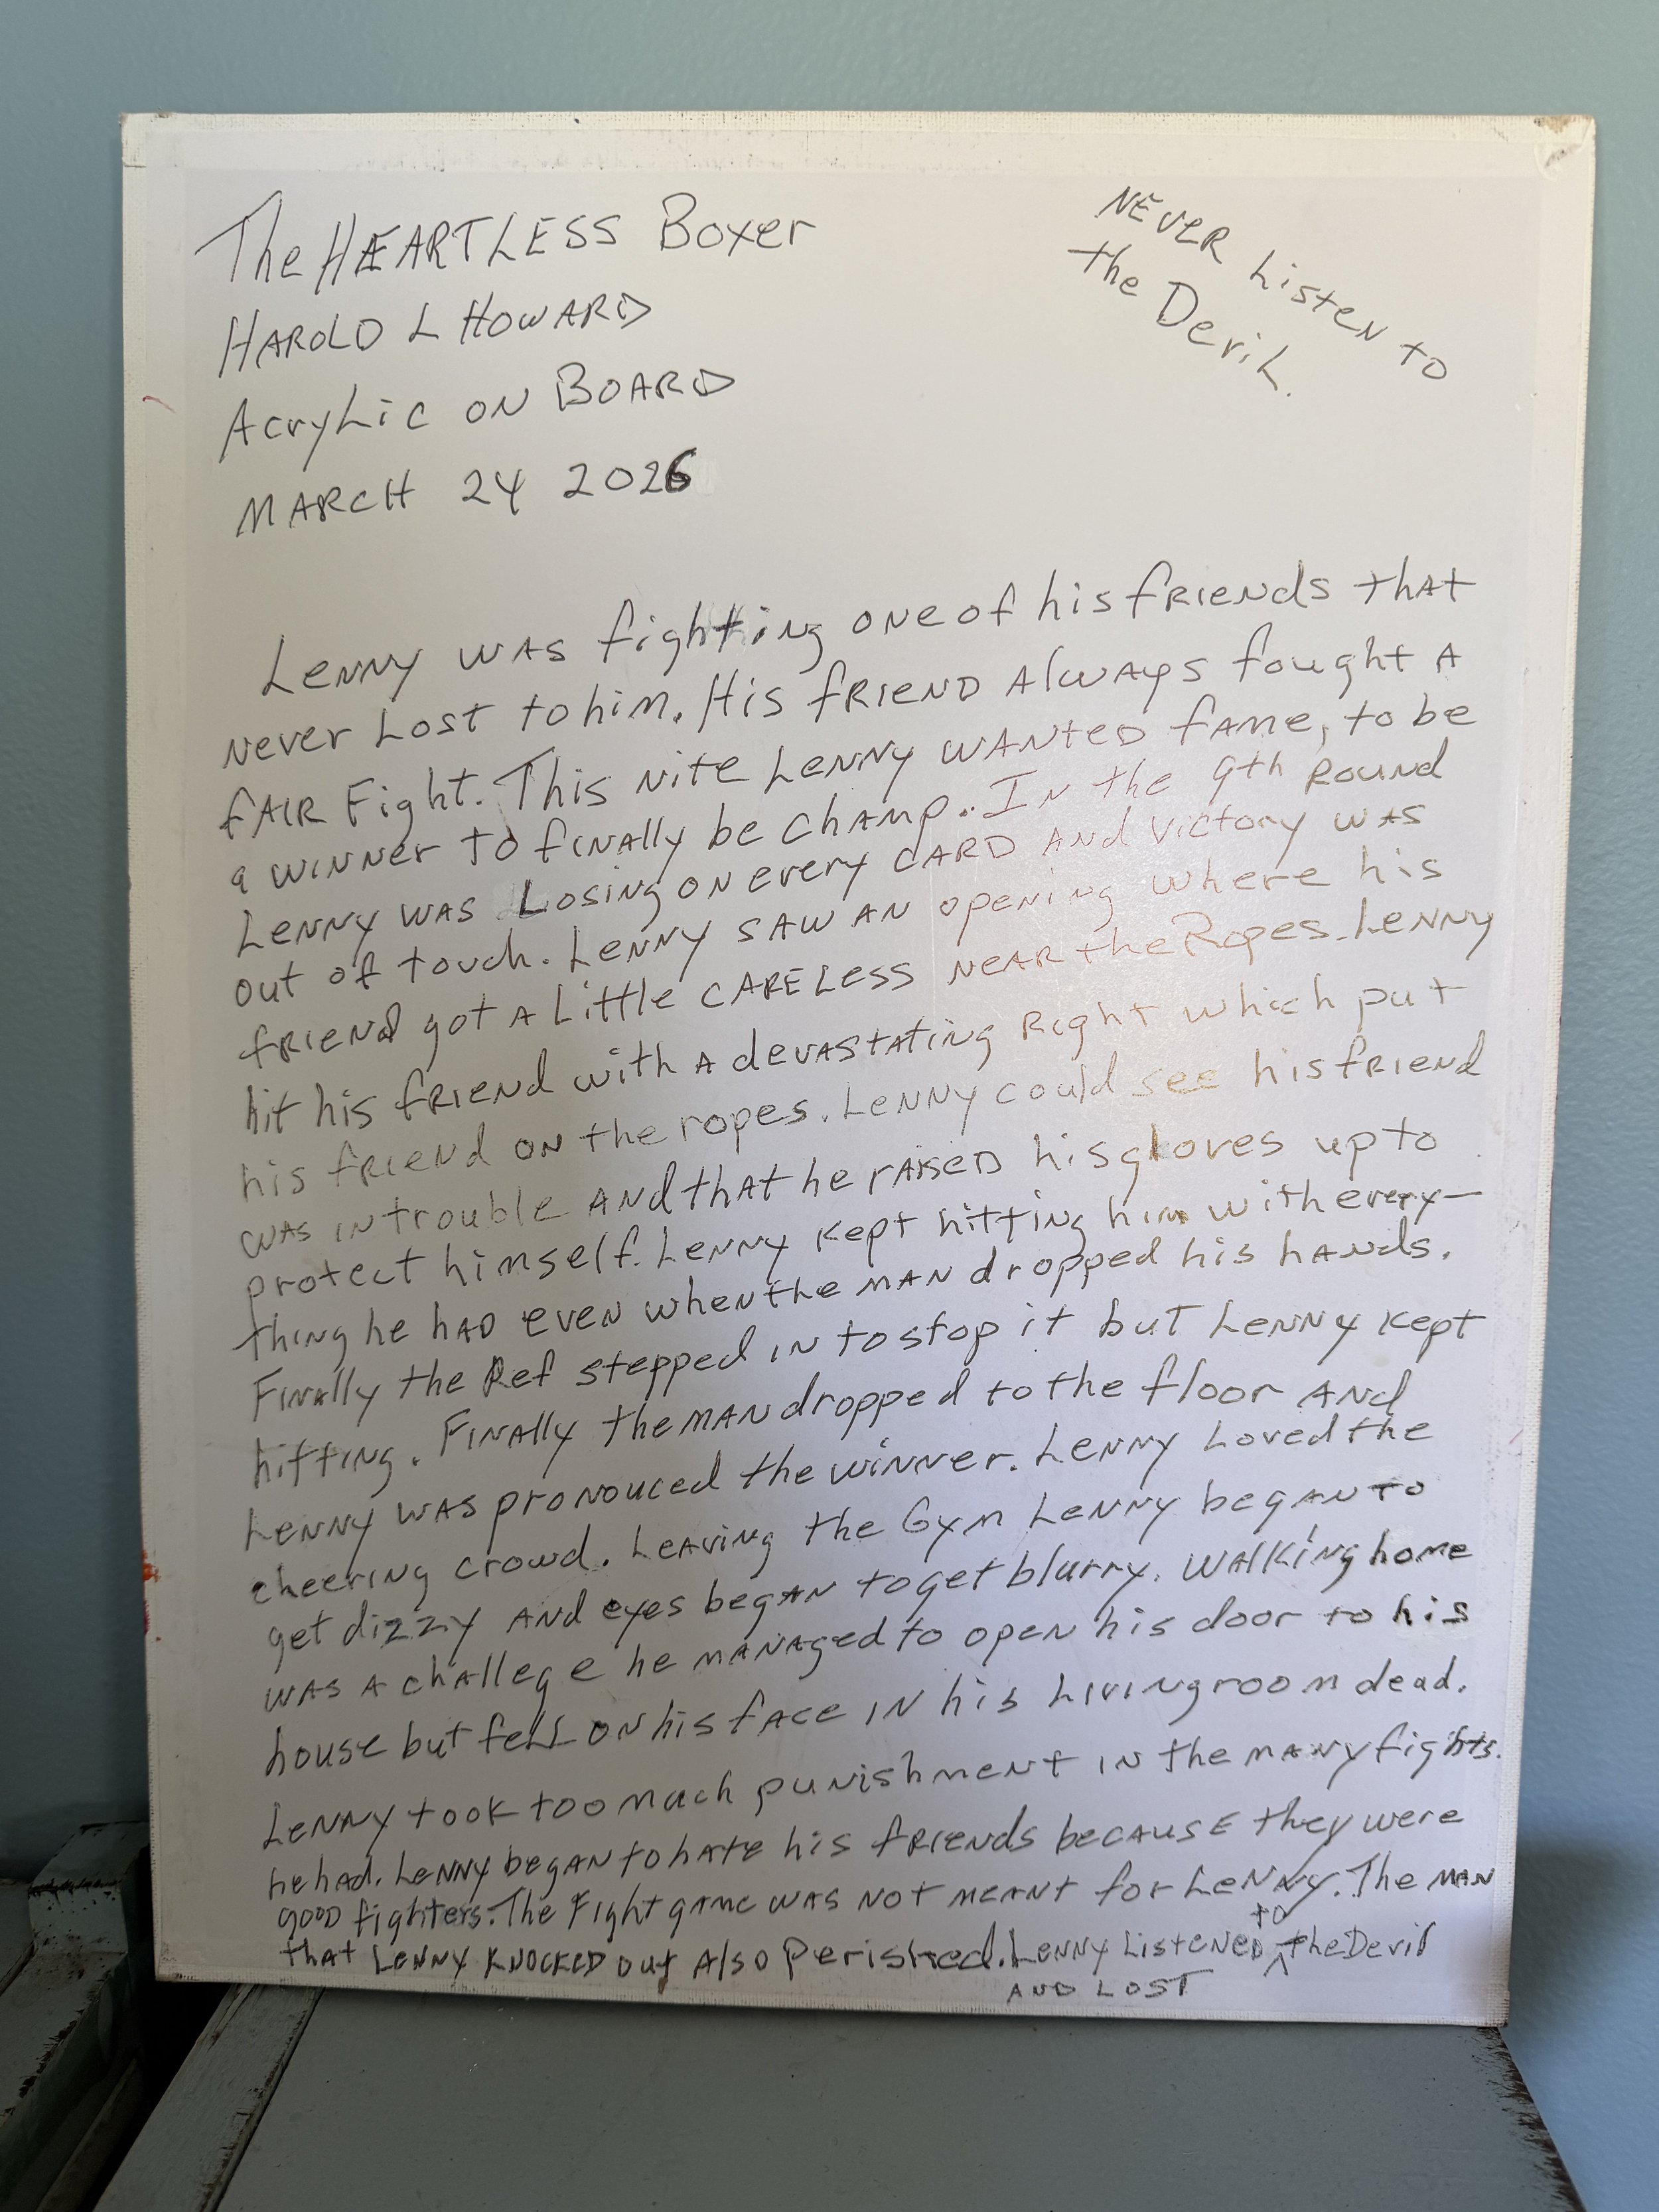 The HEARTLESS Boxer
HAROLD L HOWARD
Acrylic on BOARD
MARCH 24 2026
NEVER Listen to
the Devil.
Lenny was fighting one of his friends that
never Lost to him. His friend Always fought A
fair Fight. This nite Lenny wanted fame, to be
a winner to finally be champ.. In the 9th Round
Lenny was Losing on every card and victory was
out of touch. Lenny saw an opening where his
friend got A Little careless near the Ropes. Lenny
hit his friend with A devastating Right which put
his friend on the ropes. Lenny could see his friend
was in trouble and that he raised his gloves up to
protect himself. Lenny kept hitting him with every-
thing he had even when the man dropped his hands.
Finally the Ref stepped in to stop it but Lenny kept
hitting. Finally the man dropped to the floor and
Lenny was pronouced the winner. Lenny Loved the
cheering crowd. Leaving the Gym Lenny began to
get dizzy and eyes began to get blurry. Walking home
was a challege he managed to open his door to his
house but fell on his face in his Livingroom dead.
Lenny took too much punishment in the many fights.
he had. Lenny began to hate his friends because they were
good fighters. The Fight game was not meant for Lenny. The man
that Lenny knocked out Also Perished. Lenny Listened to the Devil
AND LOST